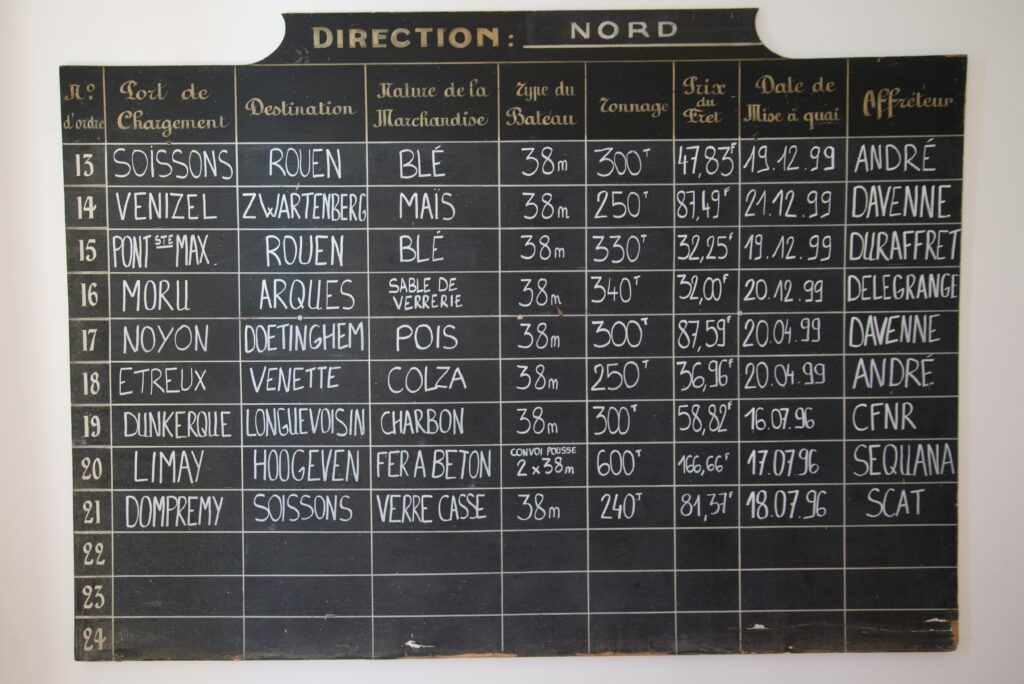 DIRECTION: NORD
N.º d'ordre Port de Chargement Destination Nature de la Marchandise Type du Bateau Tonnage Prix du Fret Date de Mise à quai Affréteur
13 SOISSONS ROUEN BLÉ 38m 300T 47,83F 19.12.99 ANDRÉ
14 VENIZEL ZWARTENBERG MAÏS 38m 250T 87,49F 21.12.99 DAVENNE
15 PONT STE MAX. ROUEN BLÉ 38m 330T 32,25F 19.12.99 DURAFFRET
16 MORU ARQUES SABLE DE VERRERIE 38m 340T 32,00F 20.12.99 DELEGRANGE
17 NOYON DOETINGHEM POIS 38m 300T 87,59F 20.04.99 DAVENNE
18 ETREUX VENETTE COLZA 38m 250T 36,96F 20.04.99 ANDRÉ
19 DUNKERQUE LONGUEVOISIN CHARBON 38m 300T 58,82F 16.07.96 CFNR
20 LIMAY HOOGEVEN FER A BETON CONVOI POUSSE 2x38m 600T 166,66F 17.07.96 SEQUANA
21 DOMPREMY SOISSONS VERRE CASSE 38m 240T 81,37F 18.07.96 SCAT
22
23
24